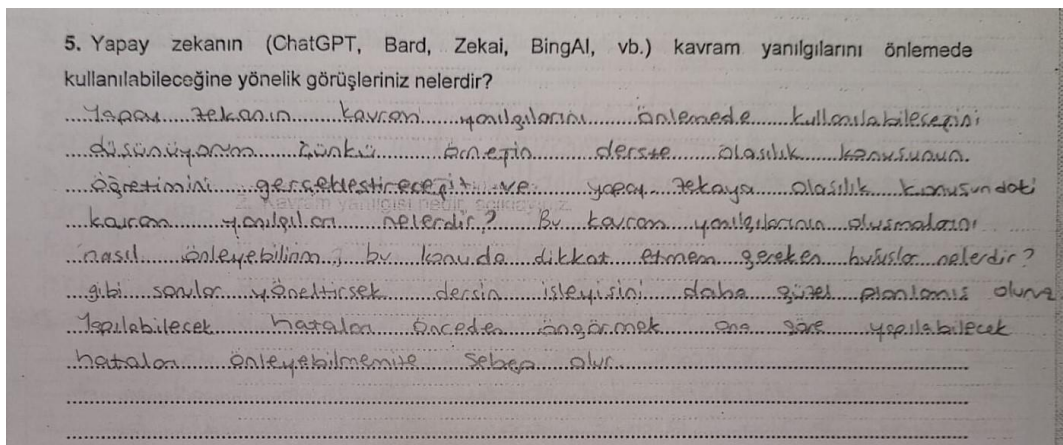 5. Yapay zekanın (ChatGPT, Bard, Zekai, BingAI, vb.) kavram yanılgılarını önlemede
kullanılabileceğine yönelik görüşleriniz nelerdir?
Yapay zekanın kavram yanılgılarını önlemede kullanılabileceğini
düşünüyorum. Çünkü örneğin derste olasılık konusunun
öğretimini gerçekleştireceğiz ve yapay zekaya olasılık konusundaki
kavram yanılgıları nelerdir? Bu kavram yanılgılarının oluşmalarını
nasıl önleyebilirim, bu konuda dikkat etmem gereken hususlar nelerdir?
gibi sorular yöneltirsek dersin işleyişini daha güzel planlamış oluruz
Yapılabilecek hataları önceden öngörmek ona göre yapılabilecek
hataları önleyebilmemize sebep olur.